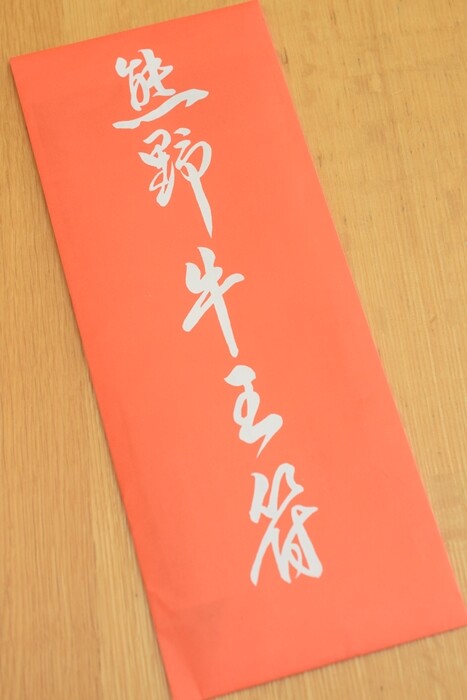 熊野牛王符